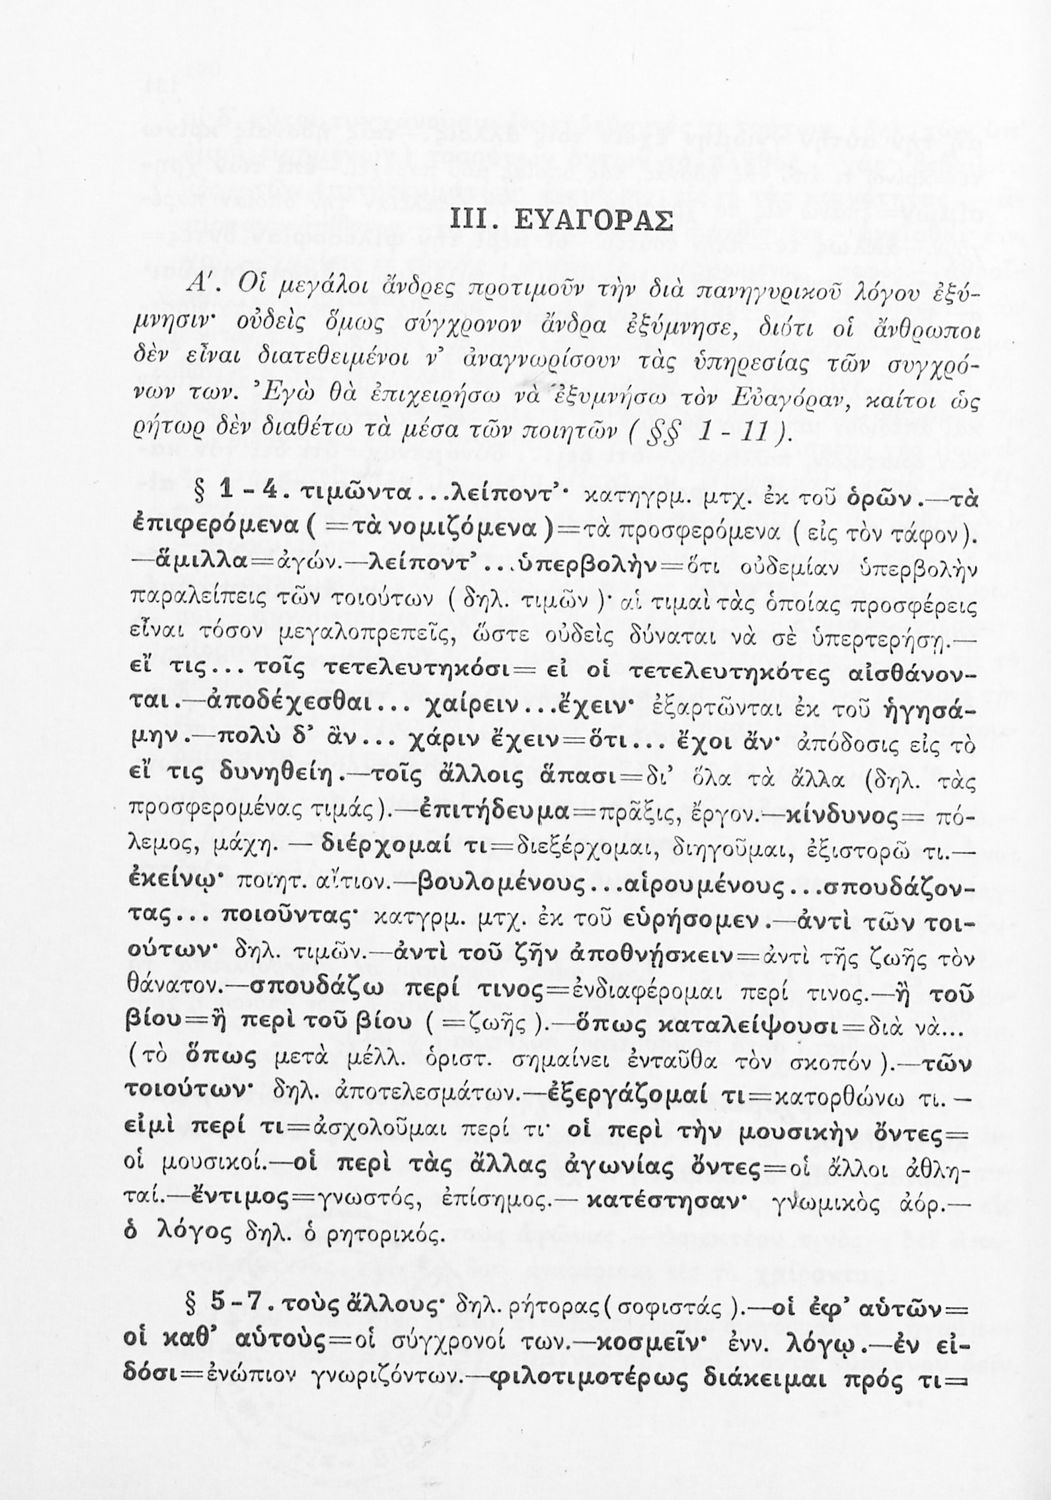 III. ΕΥΑΓΟΡΑΣ
Α'. Οἱ μεγάλοι ἄνδρες προτιμοῦν τὴν διὰ πανηγυρικοῦ λόγου ἐξύ-
μνησιν· οὐδεὶς ὅμως σύγχρονον ἄνδρα ἐξύμνησε, διότι οἱ ἄνθρωποι
δὲν εἶναι διατεθειμένοι ν' ἀναγνωρίσουν τὰς ὑπηρεσίας τῶν συγχρό-
νων των. Ἐγὼ θὰ ἐπιχειρήσω νὰ ἐξυμνήσω τὸν Εὐαγόραν, καίτοι ὡς
ρήτωρ δὲν διαθέτω τὰ μέσα τῶν ποιητῶν ( §§ 1 - 11 ).
§ 1 - 4. τιμῶντα...λείποντ'· κατηγρμ. μτχ. ἐκ τοῦ ὁρῶν.—τὰ
ἐπιφερόμενα ( =τὰ νομιζόμενα )=τὰ προσφερόμενα ( εἰς τὸν τάφον).
—ἅμιλλα=ἀγών.—λείποντ' ...ὑπερβολὴν=ὅτι οὐδεμίαν ὑπερβολὴν
παραλείπεις τῶν τοιούτων ( δηλ. τιμῶν )· αἱ τιμαὶ τὰς ὁποίας προσφέρεις
εἶναι τόσον μεγαλοπρεπεῖς, ὥστε οὐδεὶς δύναται νὰ σὲ ὑπερτερήσῃ.—
εἴ τις... τοῖς τετελευτηκόσι= εἰ οἱ τετελευτηκότες αἰσθάνον-
ται.—ἀποδέχεσθαι... χαίρειν...ἔχειν· ἐξαρτῶνται ἐκ τοῦ ἡγησά-
μην.—πολὺ δ' ἂν... χάριν ἔχειν=ὅτι... ἔχοι ἄν· ἀπόδοσις εἰς τὸ
εἴ τις δυνηθείη.—τοῖς ἄλλοις ἅπασι=δι' ὅλα τὰ ἄλλα (δηλ. τὰς
προσφερομένας τιμάς).—ἐπιτήδευμα=πρᾶξις, ἔργον.—κίνδυνος= πό-
λεμος, μάχη. — διέρχομαί τι=διεξέρχομαι, διηγοῦμαι, ἐξιστορῶ τι.—
ἐκείνῳ· ποιητ. αἴτιον.—βουλομένους...αἱρουμένους...σπουδάζον-
τας... ποιοῦντας· κατγρμ. μτχ. ἐκ τοῦ εὑρήσομεν.—ἀντὶ τῶν τοι-
ούτων· δηλ. τιμῶν.—ἀντὶ τοῦ ζῆν ἀποθνῄσκειν=ἀντὶ τῆς ζωῆς τὸν
θάνατον.—σπουδάζω περί τινος=ἐνδιαφέρομαι περί τινος.—ἢ τοῦ
βίου=ἢ περὶ τοῦ βίου ( =ζωῆς ).—ὅπως καταλείψουσι=διὰ νὰ...
(τὸ ὅπως μετὰ μέλλ. ὁριστ. σημαίνει ἐνταῦθα τὸν σκοπόν ).—τῶν
τοιούτων· δηλ. ἀποτελεσμάτων.—ἐξεργάζομαί τι=κατορθώνω τι. —
εἰμὶ περί τι=ἀσχολοῦμαι περί τι· οἱ περὶ τὴν μουσικὴν ὄντες=
οἱ μουσικοί.—οἱ περὶ τὰς ἄλλας ἀγωνίας ὄντες=οἱ ἄλλοι ἀθλη-
ταί.—ἔντιμος=γνωστός, ἐπίσημος.— κατέστησαν· γνωμικὸς ἀόρ.—
ὁ λόγος δηλ. ὁ ρητορικός.
§ 5 - 7. τοὺς ἄλλους· δηλ. ρήτορας( σοφιστάς ).—οἱ ἐφ' αὑτῶν=
οἱ καθ' αὑτοὺς=οἱ σύγχρονοί των.—κοσμεῖν· ἐνν. λόγῳ.—ἐν εἰ-
δόσι=ἐνώπιον γνωριζόντων.—φιλοτιμοτέρως διάκειμαι πρός τι=